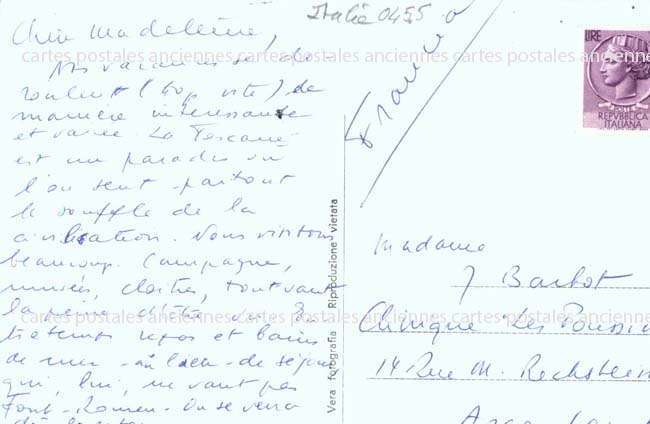 Italie 0455
Chère Madeleine,
Nos vacances se dé-
roulent (trop vite) de
manière intéressante
et variée. La Toscane
est un paradis où
l'on sent partout
le souffle de la
civilisation. Nous visitons
beaucoup. Campagne,
musées, cloîtres, tout vaut
la peine d'être vu. En
tretemps repos et bains
de mer - au lieu - de séjour
qui, lui, ne vaut pas
Font-Romeu. On se verra
France
LIRE
POSTE
REPVBBLICA
ITALIANA
cartes postales anciennes cartes postales anciennes cartes postales anciennes
cartes postales anciennes cartes postales anciennes cartes postales anciennes
Vera fotografia Riproduzione vietata
Madame
J Barbot
Clinique Les
14 Rue M.